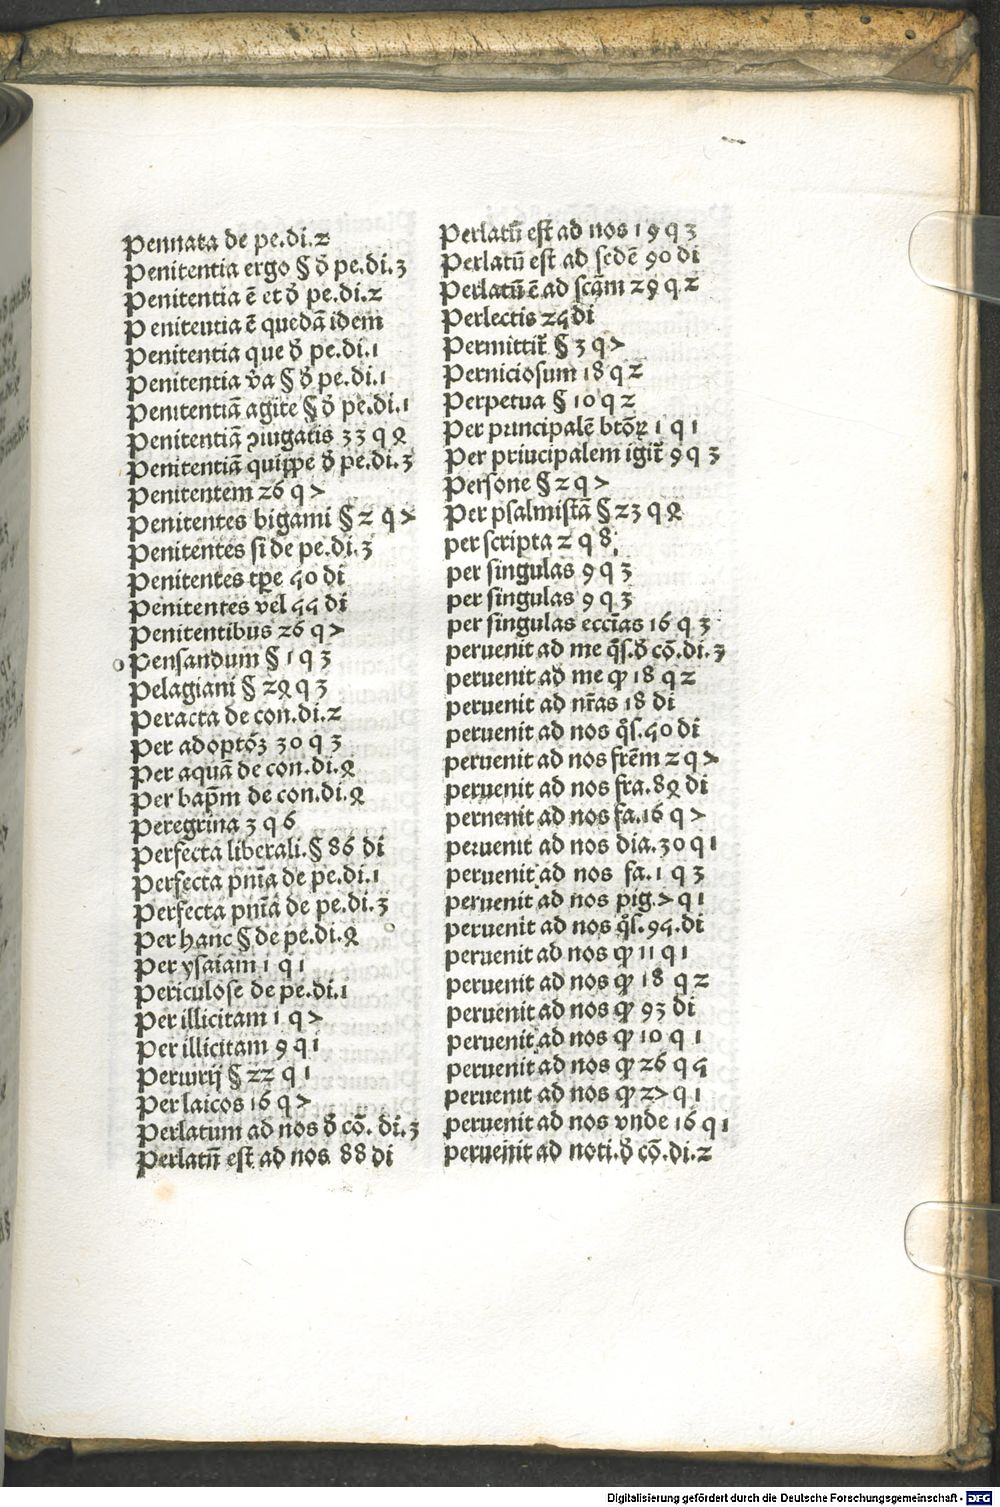 Pennata de pe.di.2
Penitentia ergo § đ pe.di.3
Penitentia ē et đ pe.di.2
Penitentia ē quedā idem
Penitentia que đ pe.di.1
Penitentia v̄a § đ pe.di.1
Penitentiā agite § đ pe.di.1
Penitentiā ꝯiugatis 33 q 4
Penitentiā quippe đ pe.di.3
Penitentem 26 q 7
Penitentes bigami § 2 q 7
Penitentes si de pe.di.3
Penitentes tꝑe 50 di
Penitentes vel 55 di
Penitentibus 26 q 7
Pensandum § 1 q 3
Pelagiani § 24 q 3
Peracta de con.di.2
Per adoptōꝫ 30 q 3
Per aquā de con.di.4
Per bap̄m de con.di.4
Peregrina 3 q 6
Perfecta liberali.§ 86 di
Perfecta pnīa de pe.di.1
Perfecta pnīa de pe.di.3
Per hanc § de pe.di.4
Per ysaiam 1 q 1
Periculose de pe.di.1
Per illicitam 1 q 7
Per illicitam 9 q 1
Periurij § 22 q 1
Per laicos 16 q 7
Perlatum ad nos đ cō. di.3
Perlatū est ad nos 88 di
Perlatū est ad nos 19 q 3
Perlatū est ad sedē 90 di
Perlatū ē ad scām 29 q 2
Perlectis 25 di
Permittit̄ § 3 q 7
Perniciosum 18 q 2
Perpetua § 10 q 2
Per principalē btōꝝ 1 q 1
Per priucipalem igit̄ 9 q 3
Persone § 2 q 7
Per psalmistā § 23 q 4
per scripta 2 q 8
per singulas 9 q 3
per singulas 9 q 3
per singulas ecclīas 16 q 3
peruenit ad me q̄s.đ cō.di.3
peruenit ad me ꝙ 18 q 2
peruenit ad nr̄as 18 di
peruenit ad nos q̄s.50 di
peruenit ad nos frēm 2 q 7
peruenit ad nos fra.84 di
pernenit ad nos fa.16 q 7
peruenit ad nos dia.30 q 1
peruenit ad nos fa.1 q 3
peruenit ad nos pig.7 q 1
peruenit ad nos q̄s.95.di
peruenit ad nos ꝙ 11 q 1
peruenit ad nos ꝙ 18 q 2
peruenit ad nos ꝙ 93 di
peruenit ad nos ꝙ 10 q 1
peruenit ad nos ꝙ 26 q 5
peruenit ad nos ꝙ 27 q 1
peruenit ad nos vnde 16 q 1
peruenit ad noti.đ cō.di.2
Digitalisierung gefördert durch die Deutsche Forschungsgemeinschaft - DFG